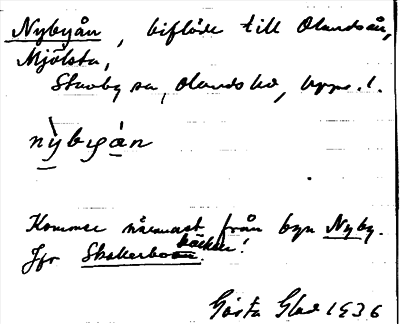 Nybyån, biflöde till Olandsån,
Mjölsta,
Stavby sn, Olands hd, Upps. l.
nỳbyån
Kommer närmast från byn Nyby.
Jfr bäcken!
Gösta 1936